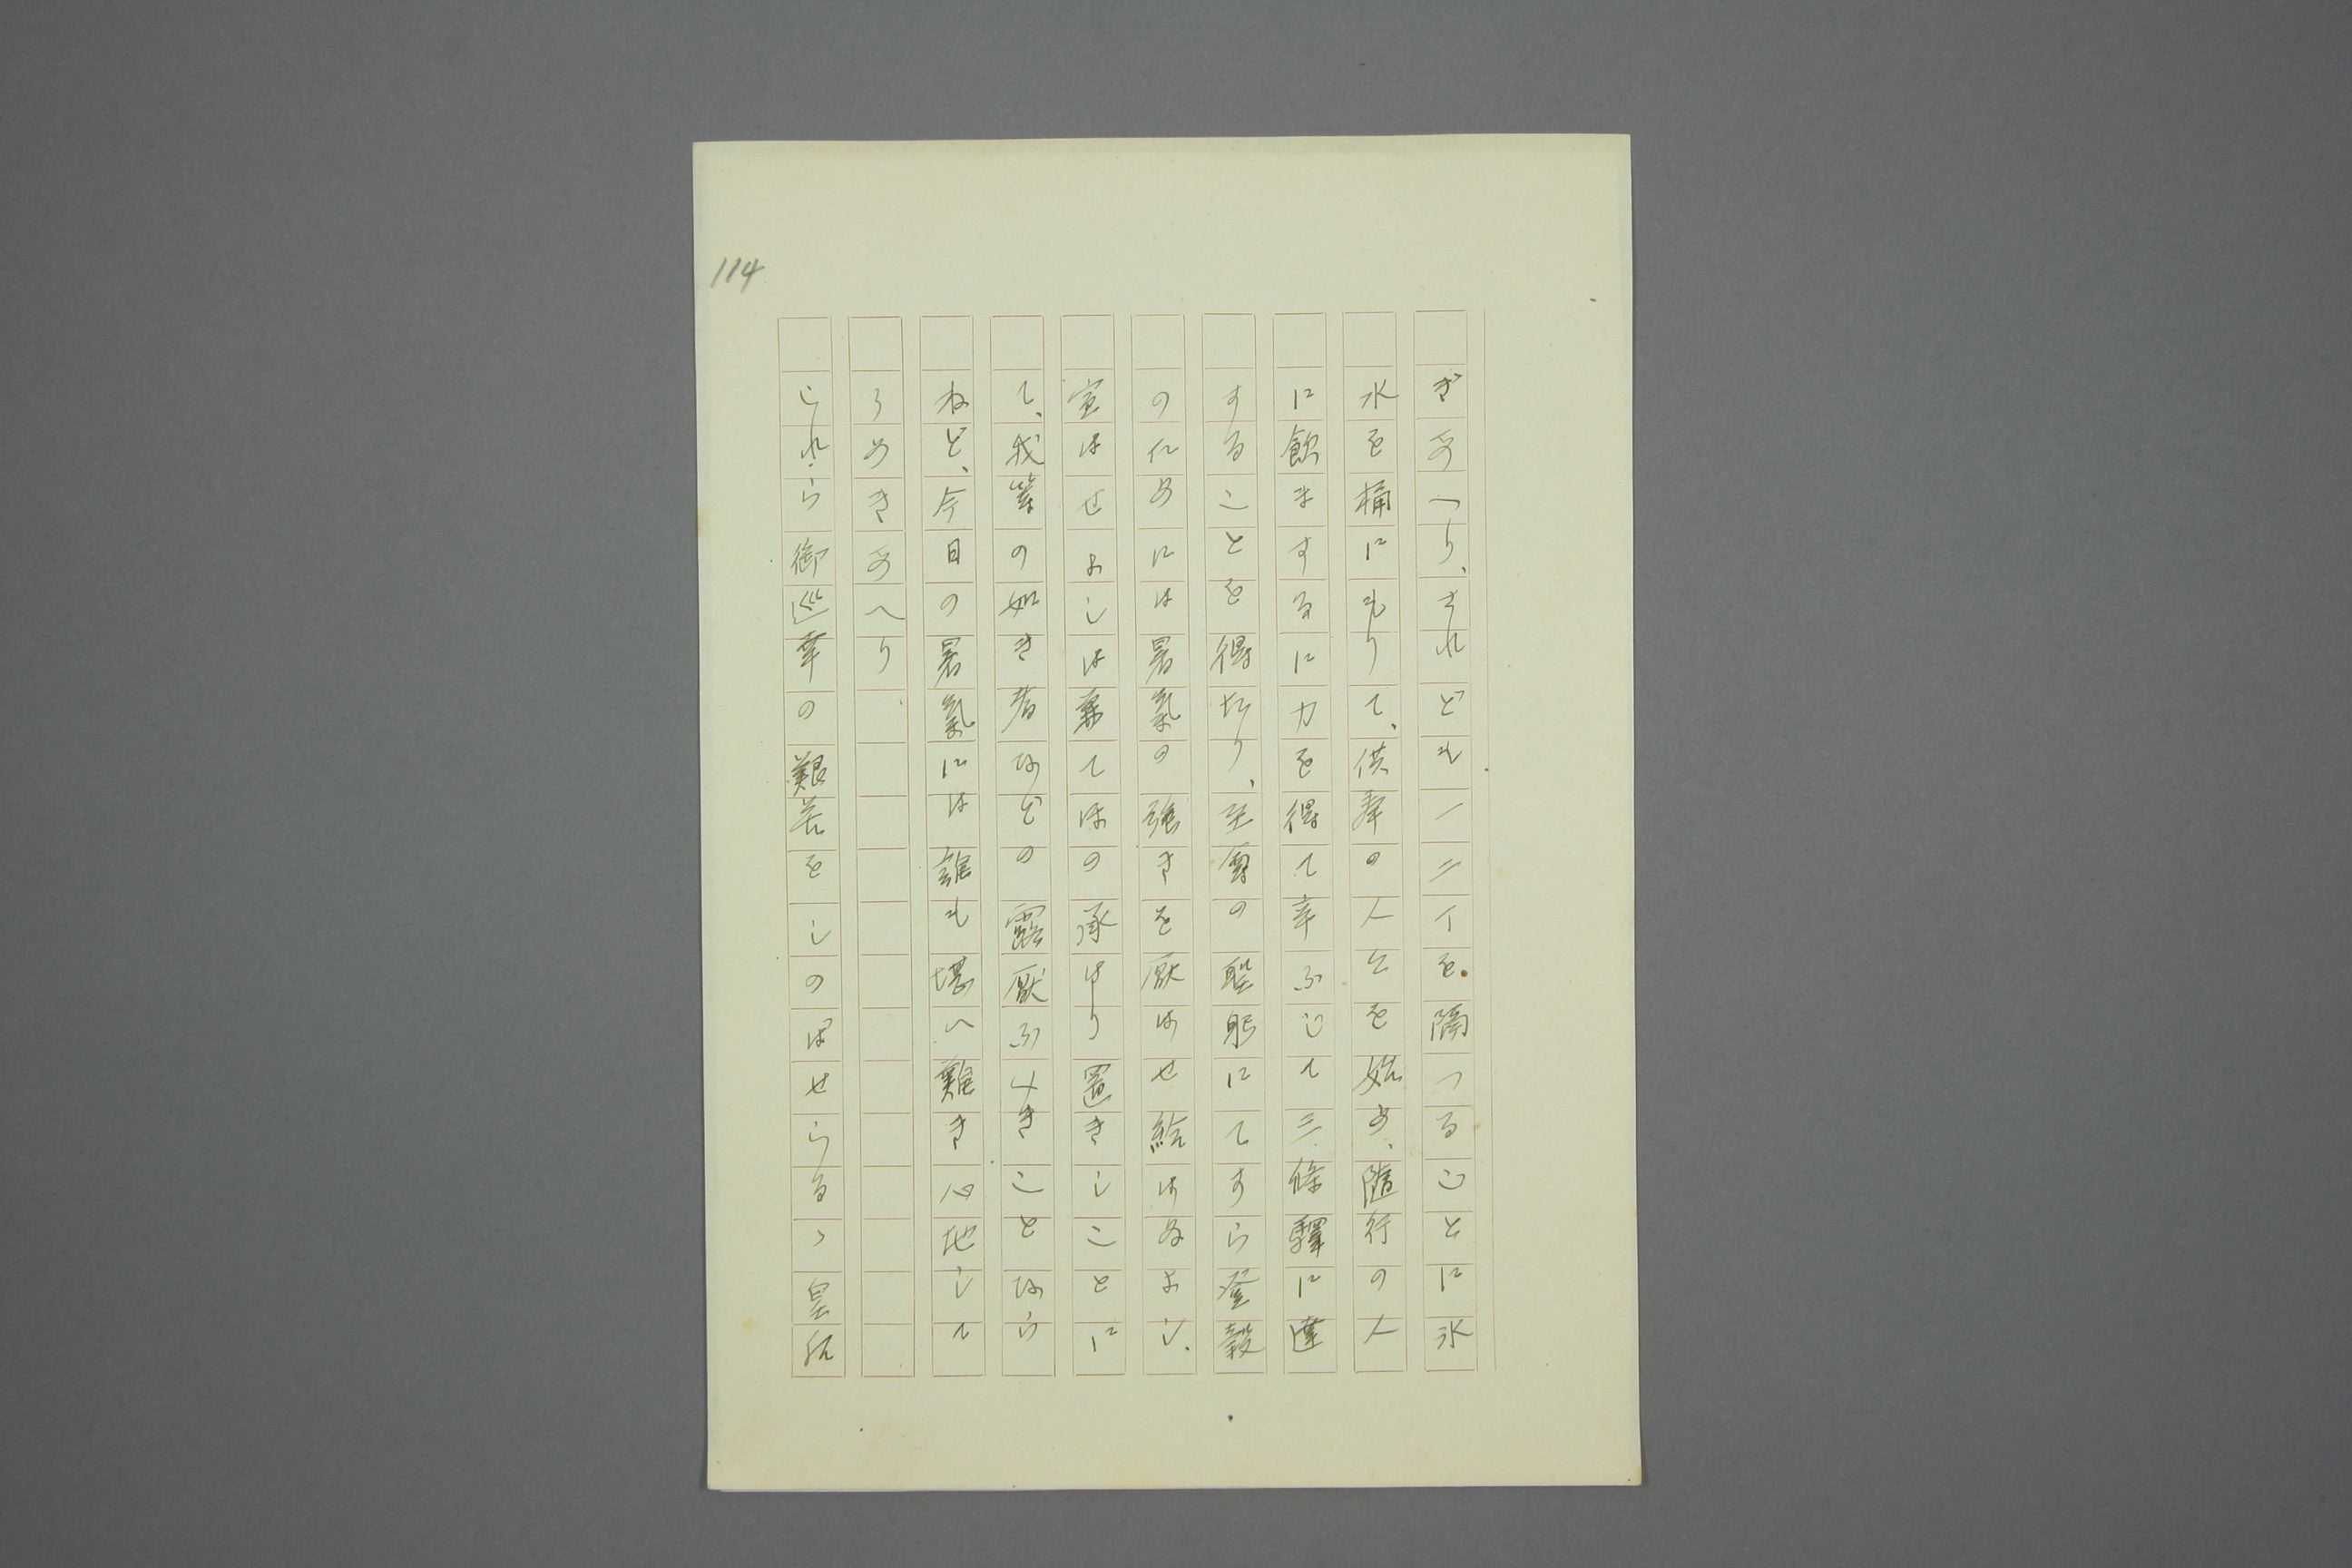 114
ぎあへり、されども一二丁を隔つることに氷
水を桶にもりて、供奉の人々を始め、隨行の人
に飲まするに力を得て辛ふじて三條驛に達
することを得たり、至尊の聖躬にてすら登穀
のためには暑氣の強きを厭はせ給はぬよし、
宣はせよしは兼てほの承はり置きしことに
て、我等の如き者などの露厭ふべきことなら
ねど、今日の暑氣には誰も堪へ難き心地して
うめきあへり
これら御巡幸の艱苦をしのばせらるゝ皇后